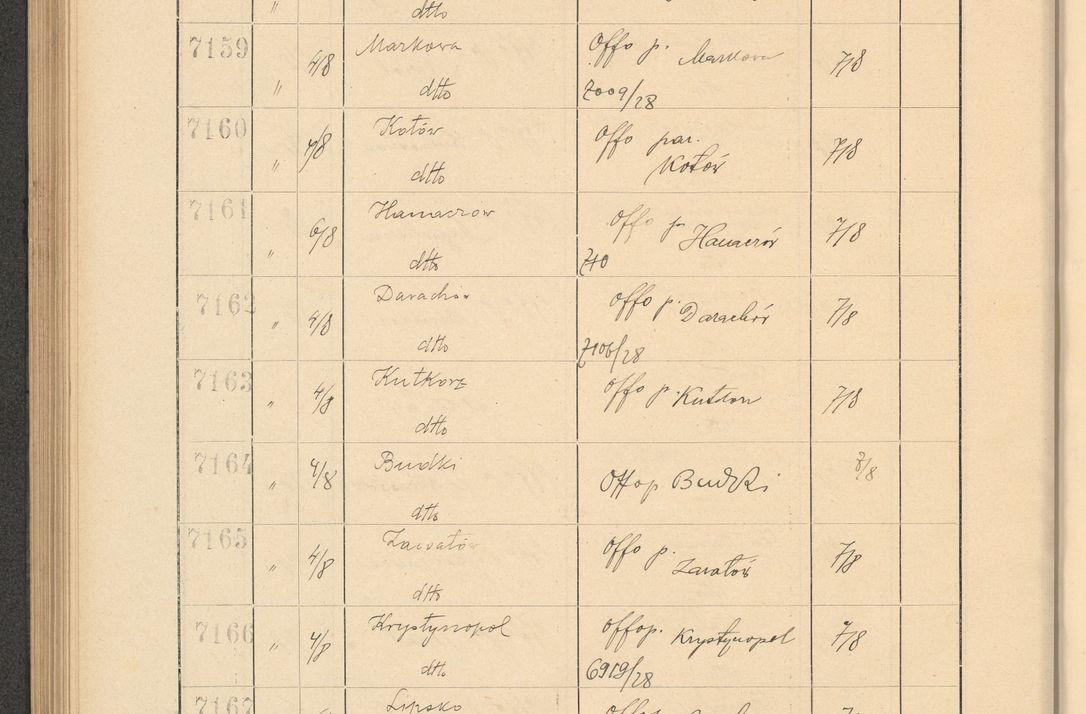 " dtto
7159 4/8 Markowa Offo p. Markowa 7/8
" dtto 7009/28
7160 4/8 Kotów Offo par. 7/8
" dtto Kotów
7161 6/8 Hanaczów Offo p. Hanaczów 7/8
" dtto 740
7162 4/8 Darachów Offo p. Darachów 7/8
" dtto 7106/28
7163 4/8 Kutkorz Offo p. 7/8
" dtto
7164 4/8 Budki Offo p Budki 7/8
" dtto
7165 4/8 Zawałów Offo p. Zawałów 7/8
" dtto
7166 4/8 Krystynopol Offo p. Krystynopol 7/8
" dtto 6919/28
7167 Lipsko